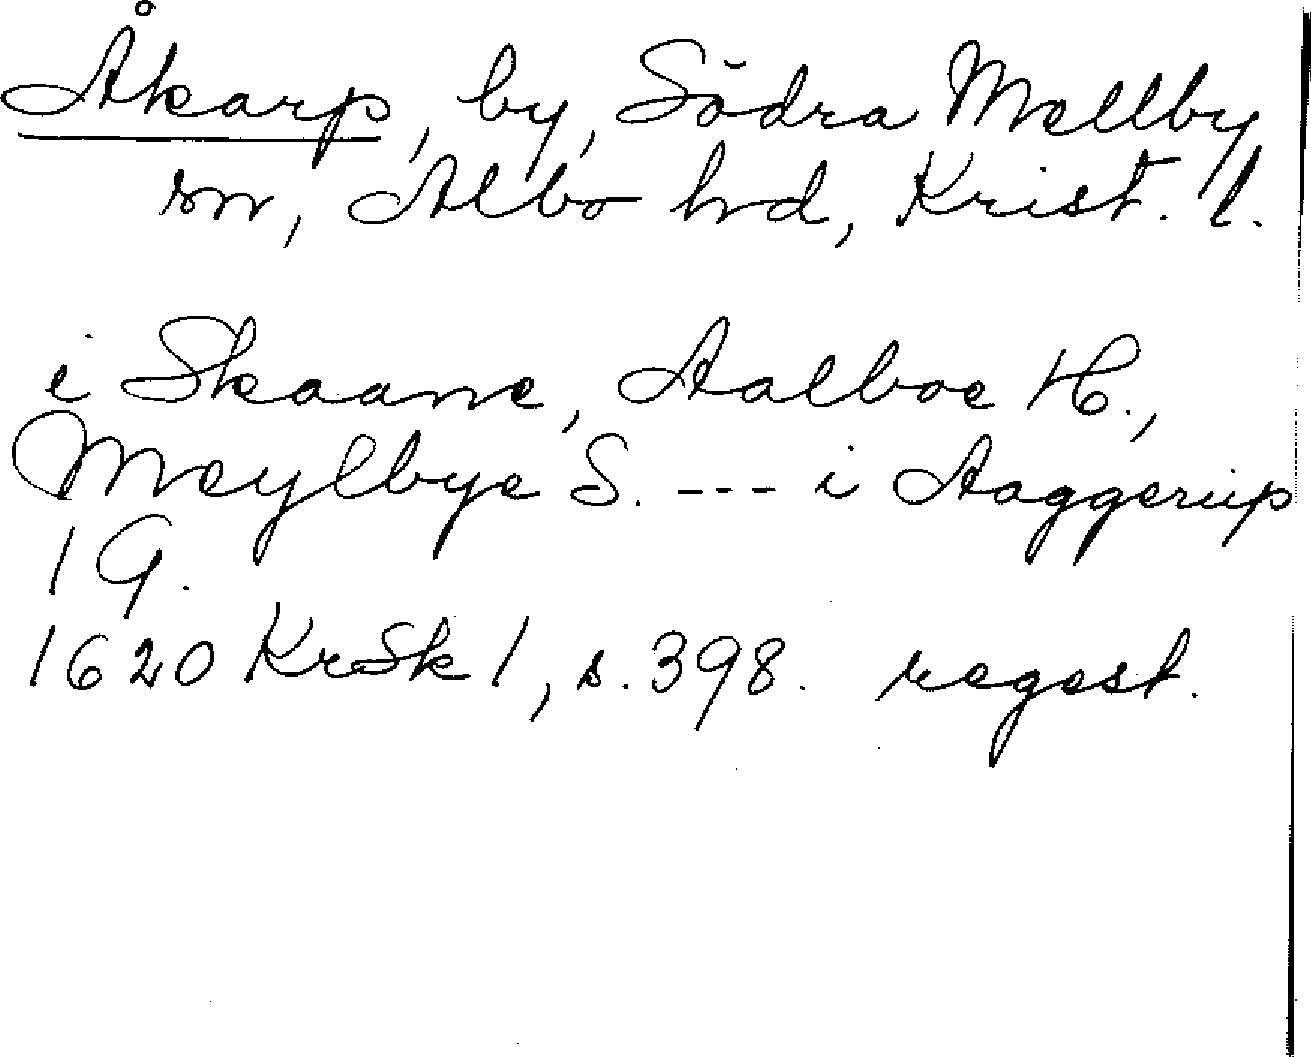 Åkarp, by, Södra Mellby
sn, Albo hd, Krist. l.
i Skaane, Aalboe H.,
Meylbye S. --- i Aaggerup
1 G.
1620 KrSk 1, s. 398. regest.